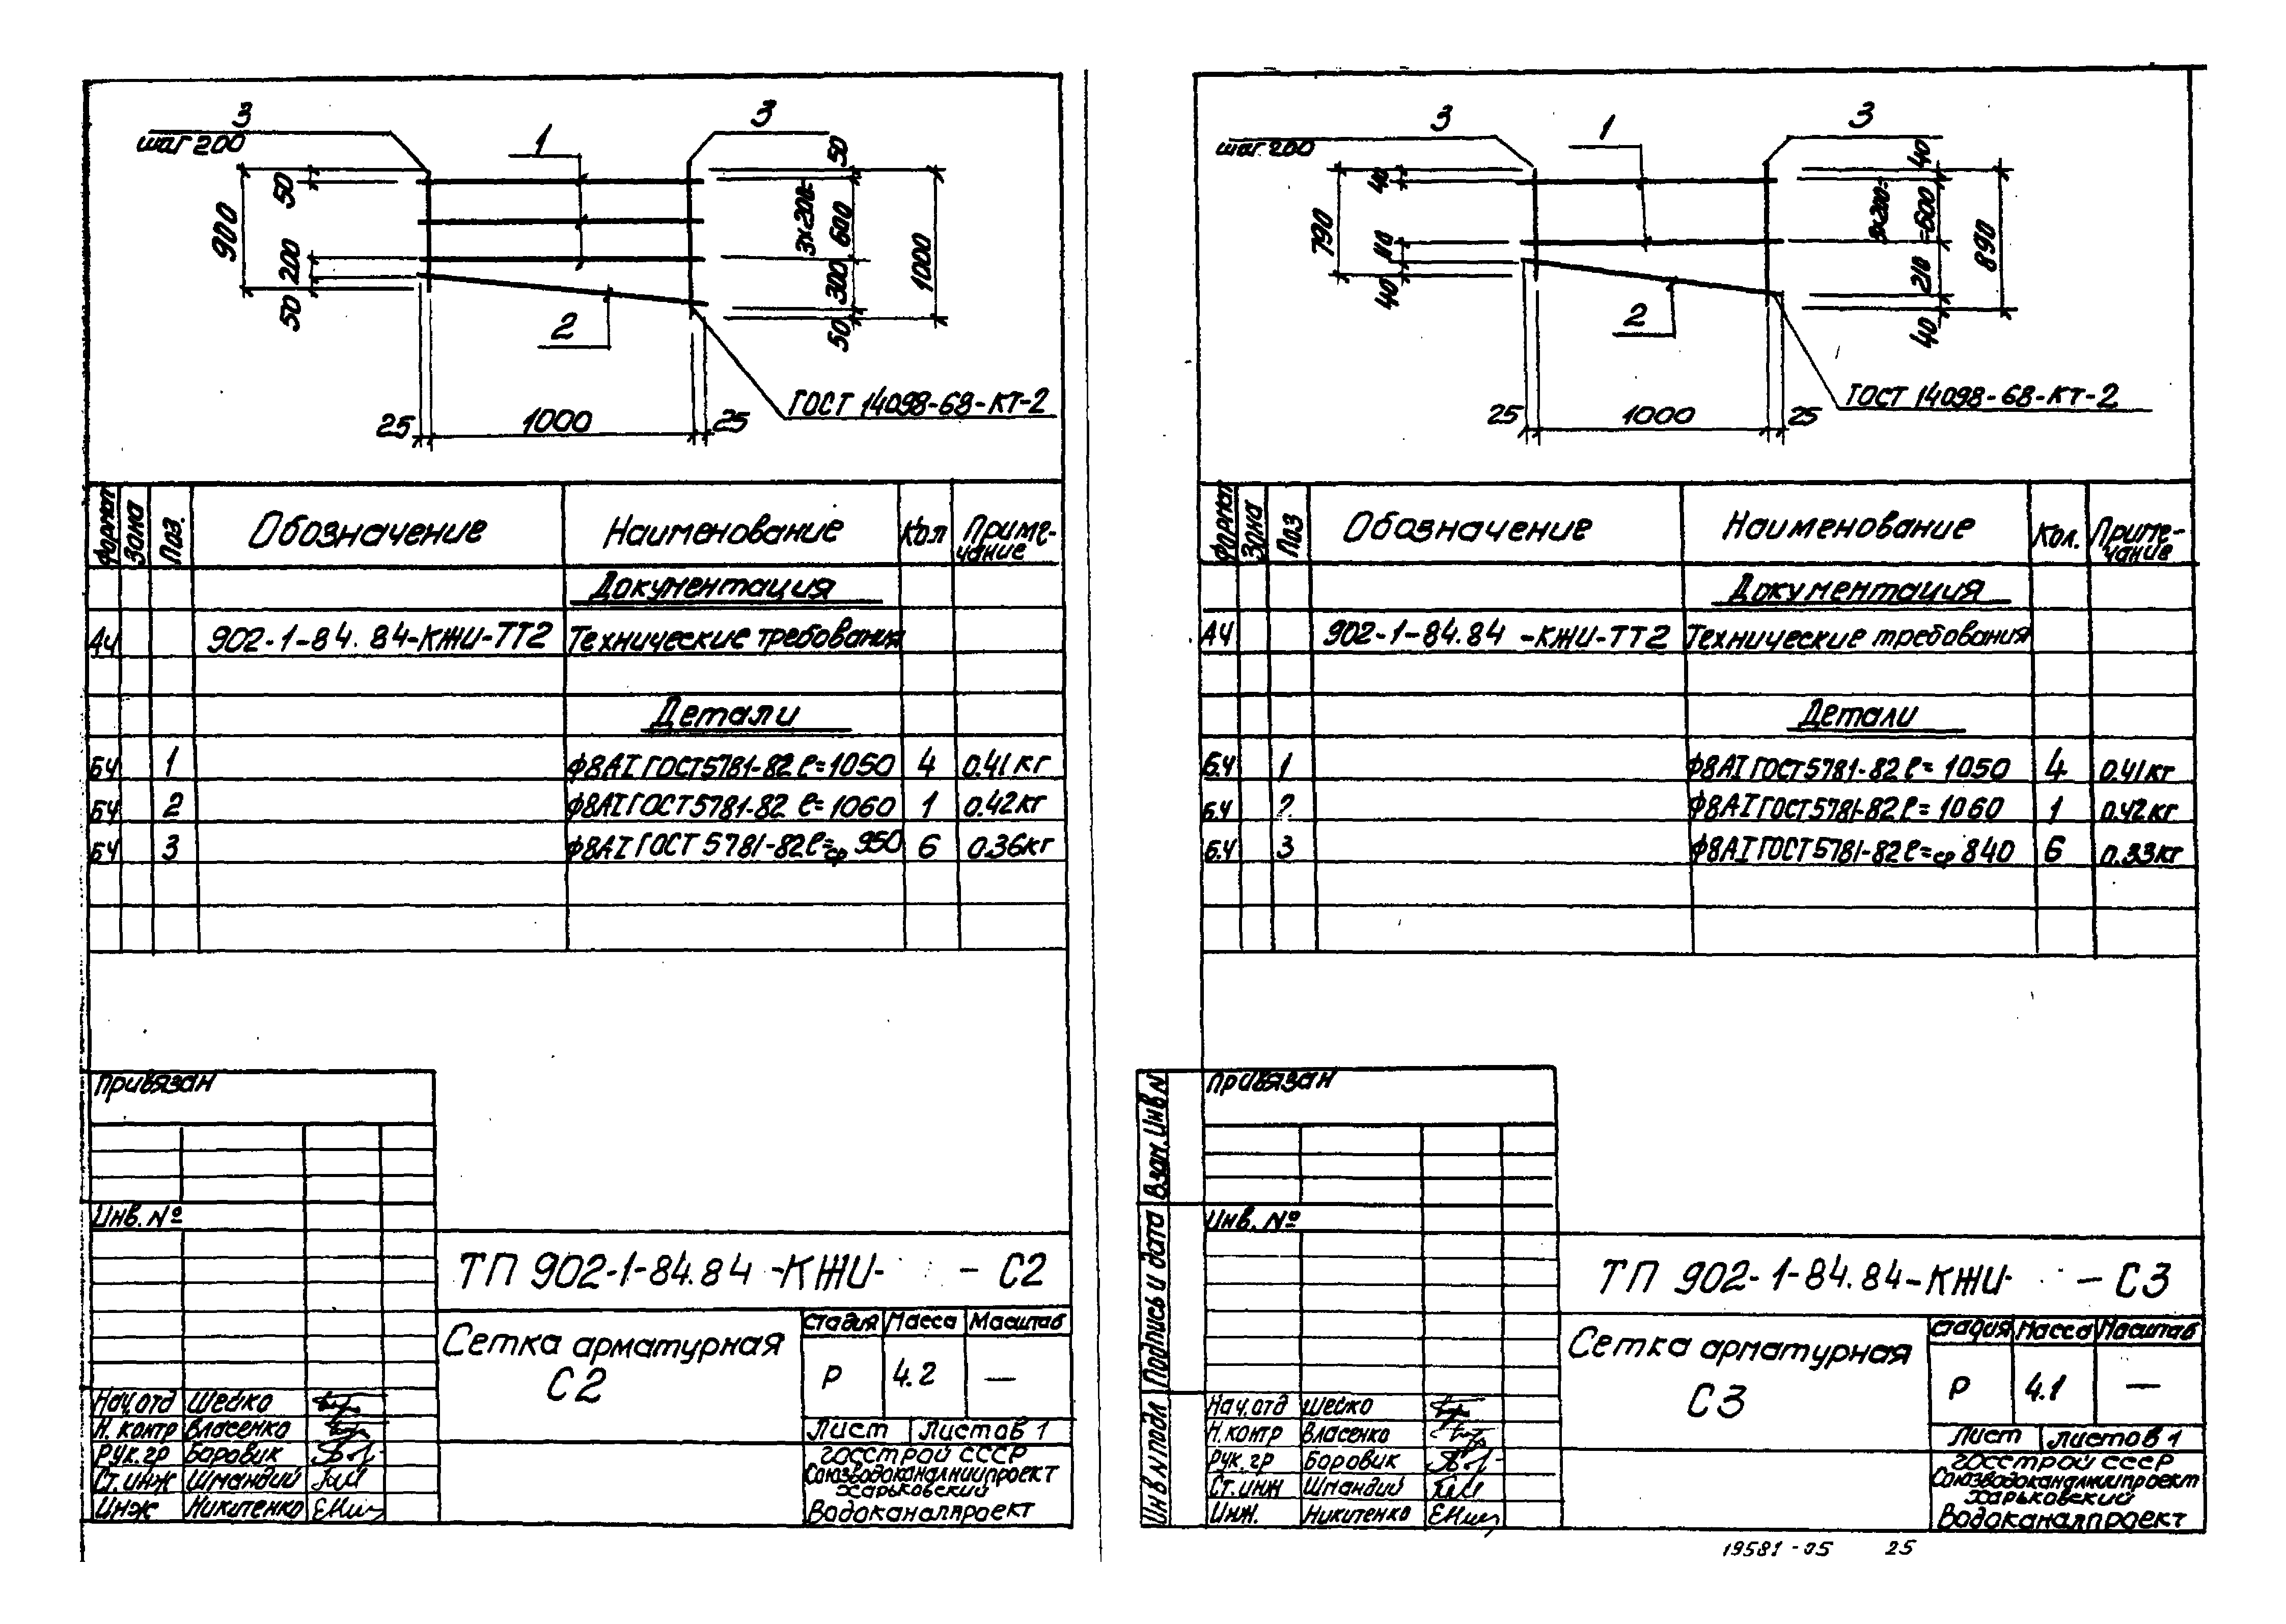 3
шаг 200
1
3
50
900
200
50
50
3×200=
600
300
50
1000
2
25
1000
25
ГОСТ 14098-68-КТ-2
Формат
Зона
Поз.
Обозначение
Наименование
Кол
Приме-
чание
Документация
А4 902-1-84.84-КЖИ-ТТ2 Технические требования
Детали
БЧ 1 Ф8АI ГОСТ 5781-82 ℓ=1050 4 0.41кг
БЧ 2 Ф8АI ГОСТ 5781-82 ℓ=1060 1 0.42кг
БЧ 3 Ф8АI ГОСТ 5781-82 ℓ=ср 950 6 0.36кг
Привязан
Инв. №
ТП 902-1-84.84-КЖИ- - С2
Сетка арматурная
С2
Стадия Масса Масштаб
Р 4.2 —
Лист Листов 1
Госстрой СССР
Союзводоканалниипроект
Харьковский
Водоканалпроект
Нач.отд Шейко
Н.контр Власенко
Рук.гр Боровик
Ст.инж Шмандий
Инж Никитенко
3
шаг 200
1
3
40
790
110
40
40
3×200=
=600
210
40
890
2
25
1000
25
ГОСТ 14098-68-КТ-2
Формат
Зона
Поз
Обозначение
Наименование
Кол.
Приме-
чание
Документация
А4 902-1-84.84-КЖИ-ТТ2 Технические требования
Детали
Б.Ч 1 Ф8АI ГОСТ 5781-82 ℓ=1050 4 0.41кг
Б.Ч 2 Ф8АI ГОСТ 5781-82 ℓ=1060 1 0.42кг
Б.Ч 3 Ф8АI ГОСТ 5781-82 ℓ=ср 840 6 0.33кг
Привязан
Инв. №
Взам.Инв N
Подпись и дата
Инв N подл
ТП 902-1-84.84-КЖИ- - С3
Сетка арматурная
С3
Стадия Масса Масштаб
Р 4.1 —
Лист Листов 1
Госстрой СССР
Союзводоканалниипроект
Харьковский
Водоканалпроект
Нач.отд Шейко
Н.контр Власенко
Рук.гр Боровик
Ст.инж Шмандий
Инж. Никитенко
19581-05 25